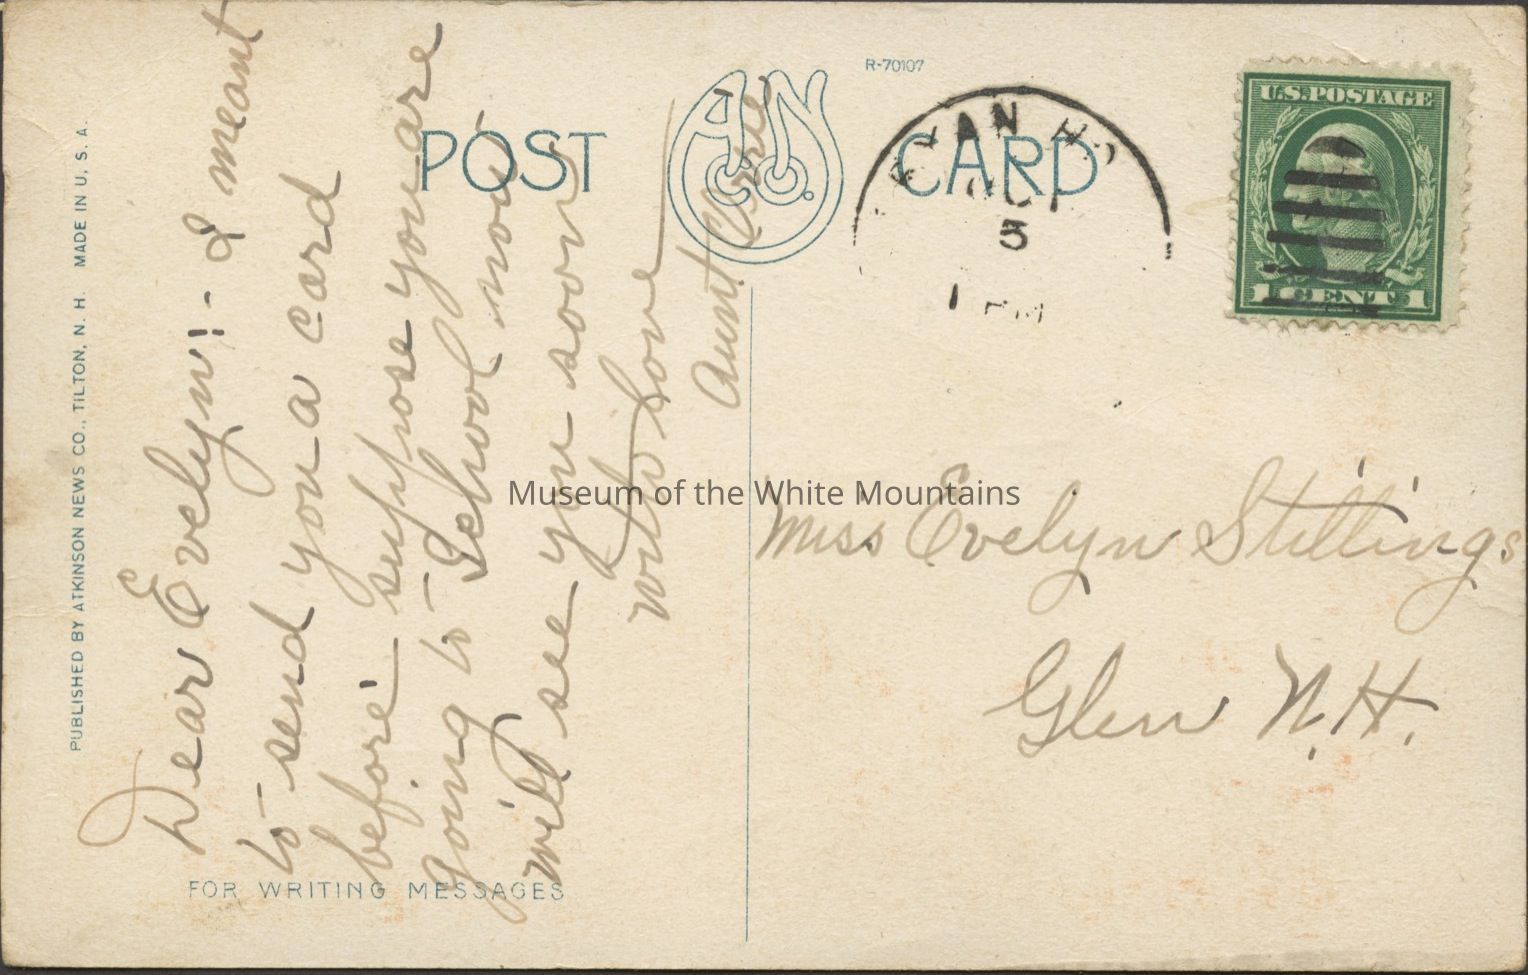 PUBLISHED BY ATKINSON NEWS CO., TILTON, N. H. MADE IN U. S. A.
POST CARD
A N Co.
R-70107
U.S. POSTAGE
1 CENT 1
5
1 PM
Dear Evelyn:- I meant
to send you a card
before suppose you are
going to School now
will see you soon
with love
Aunt
FOR WRITING MESSAGES
Miss Evelyn Stillings
Glen N.H.
Museum of the White Mountains